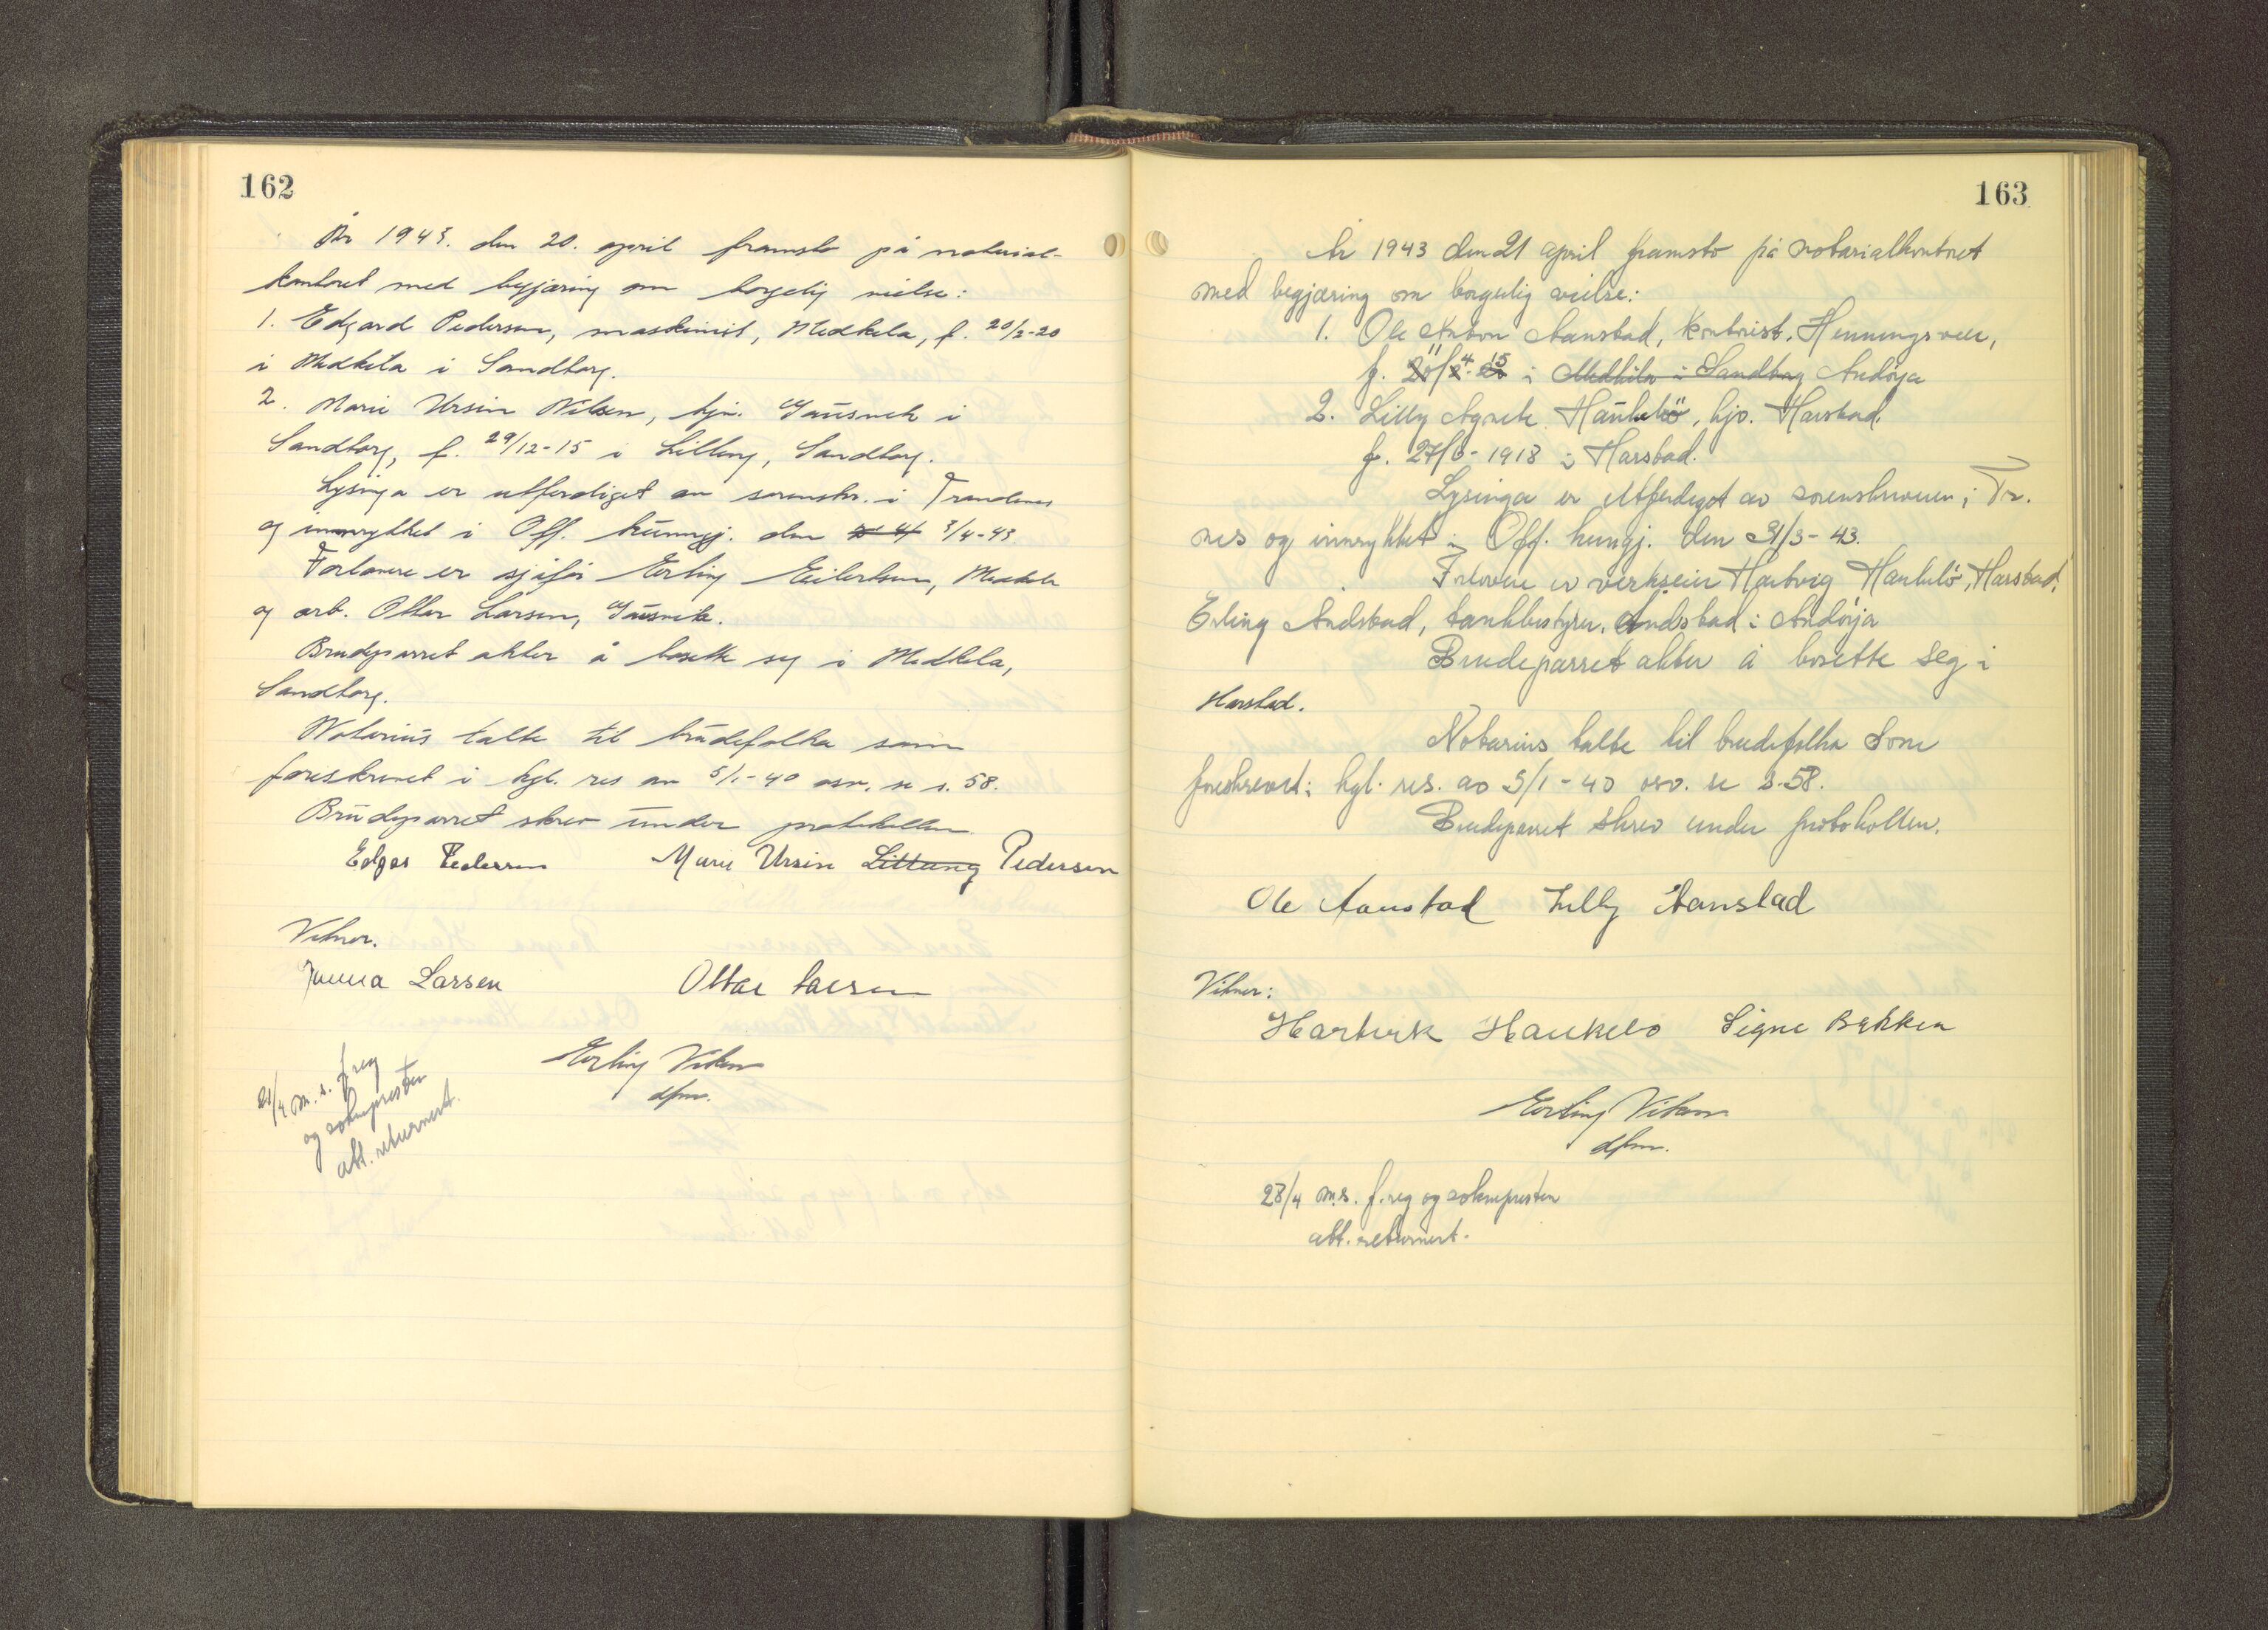 162
År 1943. den 20. april framsto på notarial-
kontoret med begjæring om borgelig vielse:
1. Edgard Pedersen, maskinist, Medkila, f. 20/2-20
i Medkila i Sandtorg.
2. Marie Ursin Nilsen, hjv. Gausvik i
Sandtorg, f. 29/12-15 i Lilleng, Sandtorg.
Lysinga er utferdiget av sorenskr. i Trondenes
og innrykket i Off. kunngj. den 3/4-43.
Forlovere er sjåfør Erling Eilertsen, Medkila
og arb. Ottar Larsen, Gausvik.
Brudeparret akter å bosette seg i Medkila,
Sandtorg.
Notarius talte til brudefolka som
foreskrevet i kgl. res av 5/1-40 osv. se s. 58.
Brudeparret skrev under protokollen.
Edgar Pedersen Marie Ursin Littung Pedersen
Vitner.
Larsen Ottar Larsen
Erling Viken
dfm.
21/4 m. s. f. reg
og soknepresten
att. returnert.
163
År 1943 den 21 april framsto på notarialkontoret
med begjæring om borgerlig vielse:
1. Ole Anton Aanstad, kontorist, Henningsvær,
f. 11/4-15 i Medkila i Sandtorg Andørja
2. Lilly Agnete Haukebö, hjv. Harstad.
f. 27/6-1918 i Harstad.
Lysinga er utferdiget av sorenskriveren i Tr.
nes og innrykket i Off. kungj. den 31/3-43.
Forlovere er verkseier Hartvig Haukebö, Harstad,
Erling Andstad, tankbestyrer, Aandstad i Andörja
Brudeparret akter å bosette seg i
Harstad.
Notarius talte til brudefolka som
foreskrevet i kgl. res. av 5/1-40 osv. se s. 58.
Brudeparret skrev under protokollen.
Ole Aanstad Lilly Aanstad
Vitner:
Hartvik Haukebo Signe Bakken
Erling Viken
dfm.
28/4 m.s. f. reg og soknepresten
att. returnert.